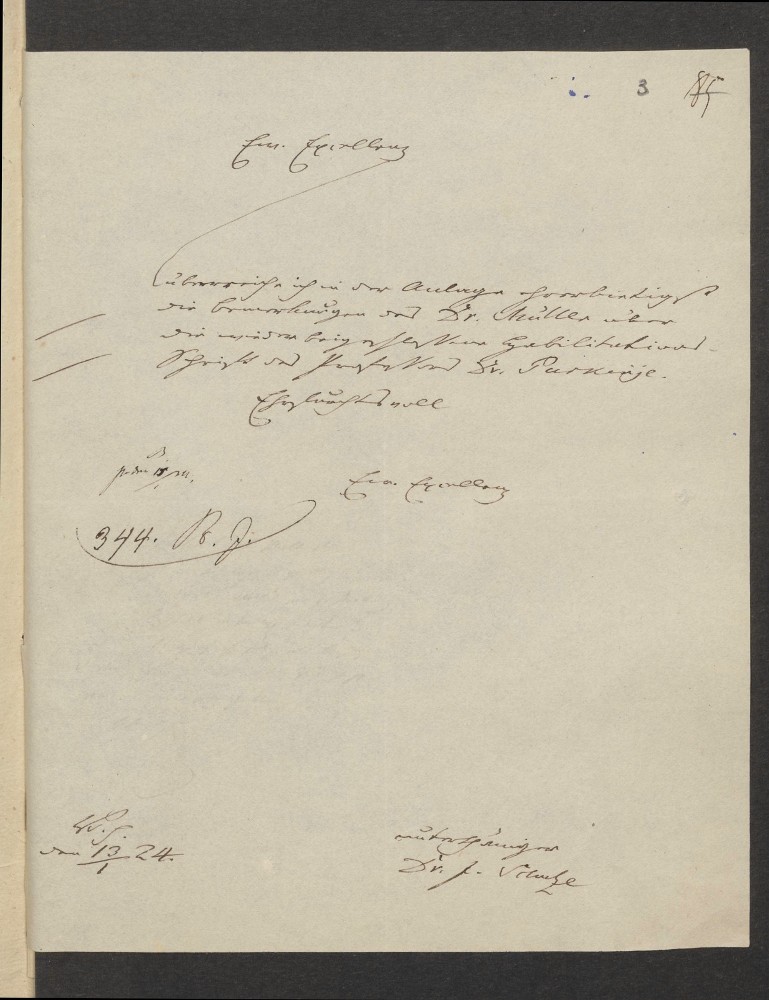 3 85
Ew. Excellenz
überreiche ich in der Anlage ehrerbietigst
die Bemerkungen des Dr. Müller über
die wieder beigeschlossene Habilitations-
Schrift des Professors Dr. Purkinje.
Ehrfurchtsvoll
Ew. Excellenz
344.
den 13/1 24.
unterthäniger
Dr. J. Schulze